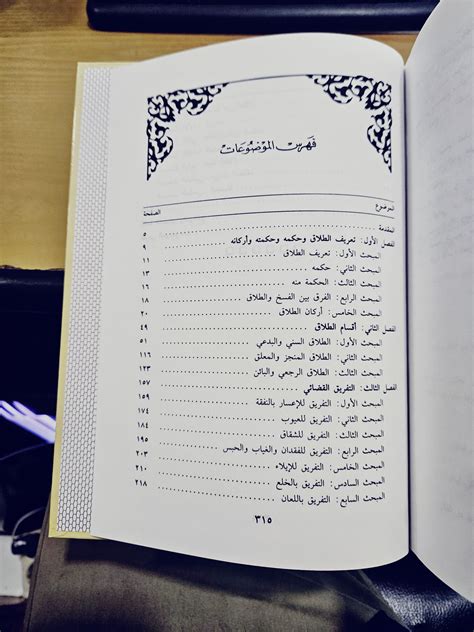 فهرس الموضوعات
الموضوع الصفحة
المقدمة ٥
الفصل الأول: تعريف الطلاق وحكمه وحكمته وأركانه ٩
المبحث الأول: تعريف الطلاق ١١
المبحث الثاني: حكمه ١٣
المبحث الثالث: الحكمة منه ١٦
المبحث الرابع: الفرق بين الفسخ والطلاق ١٨
المبحث الخامس: أركان الطلاق ٢٠
الفصل الثاني: أقسام الطلاق ٤٩
المبحث الأول: الطلاق السني والبدعي ٥١
المبحث الثاني: الطلاق المنجز والمعلق ١١٦
المبحث الثالث: الطلاق الرجعي والبائن ١٢٣
الفصل الثالث: التفريق القضائي ١٥٧
المبحث الأول: التفريق للإعسار بالنفقة ١٥٩
المبحث الثاني: التفريق للعيوب ١٧٤
المبحث الثالث: التفريق للشقاق ١٨٤
المبحث الرابع: التفريق للفقدان والغياب والحبس ١٩٥
المبحث الخامس: التفريق للإيلاء ٢٠٣
المبحث السادس: التفريق بالخلع ٢١٠
المبحث السابع: التفريق باللعان ٢١٨
٣١٥